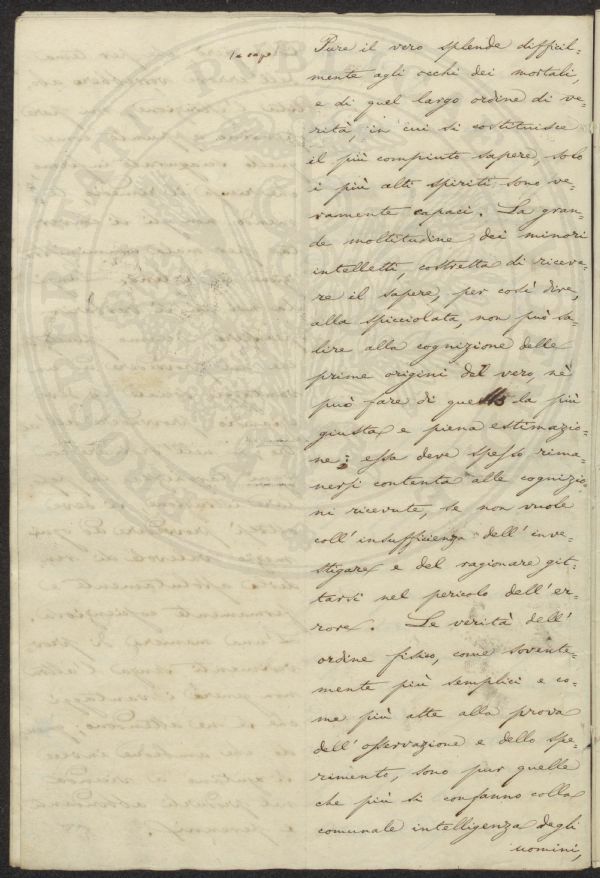 Pure il vero splende difficil=
mente agli occhi dei mortali,
e di quel largo ordine di ve=
rità, in cui si costituisce
il più compiuto sapere, solo
i più alti spiriti sono ve=
ramente capaci. La gran=
de moltitudine dei minori
intelletti, costretta di riceve=
re il sapere, per così dire,
alla spicciolata, non può sa=
lire alla cognizione delle
prime origini del vero, nè
può fare di questo la più
giusta e piena estimazio=
ne; essa deve spesso rima=
nersi contenta alle cognizio=
ni ricevute, se non vuole
coll' insufficienza dell' inve=
stigare e del ragionare git=
tarsi nel pericolo dell' er=
rore. Le verità dell'
ordine fisico, come sovente=
mente più semplici e co=
me più atte alla prova
dell' osservazione e dello spe=
rimento, sono pur quelle
che più si confanno colla
comunale intelligenza degli
uomini,